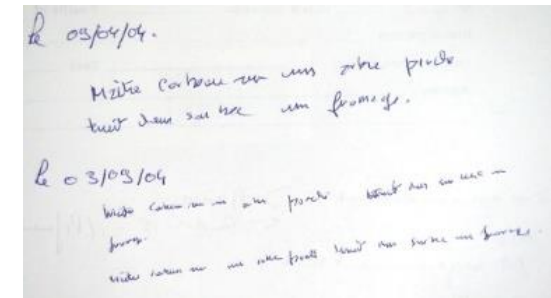 le 09/04/04.
Maître Corbeau sur uns arbre perche
tenait dans son bec un fromage.
le 03/09/04
Maitre corbeau sur un arbre perché tenait dans son bec un
fromage.
Maitre corbeau sur un arbre perché tenait dans son bec un fromage.